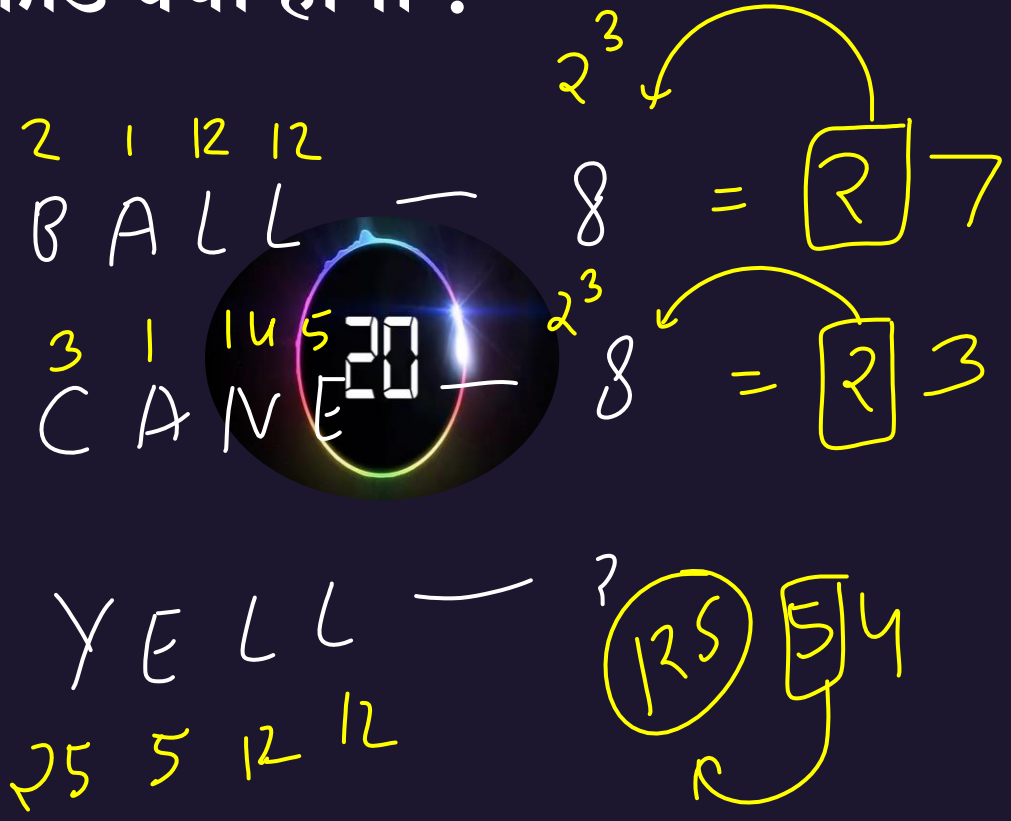 क्या होगा ?
2³
2 1 12 12
B A L L — 8 = 2 7
2³
3 1 14 5
20
C A N E — 8 = 2 3
Y E L L — ? 125 5 4
25 5 12 12